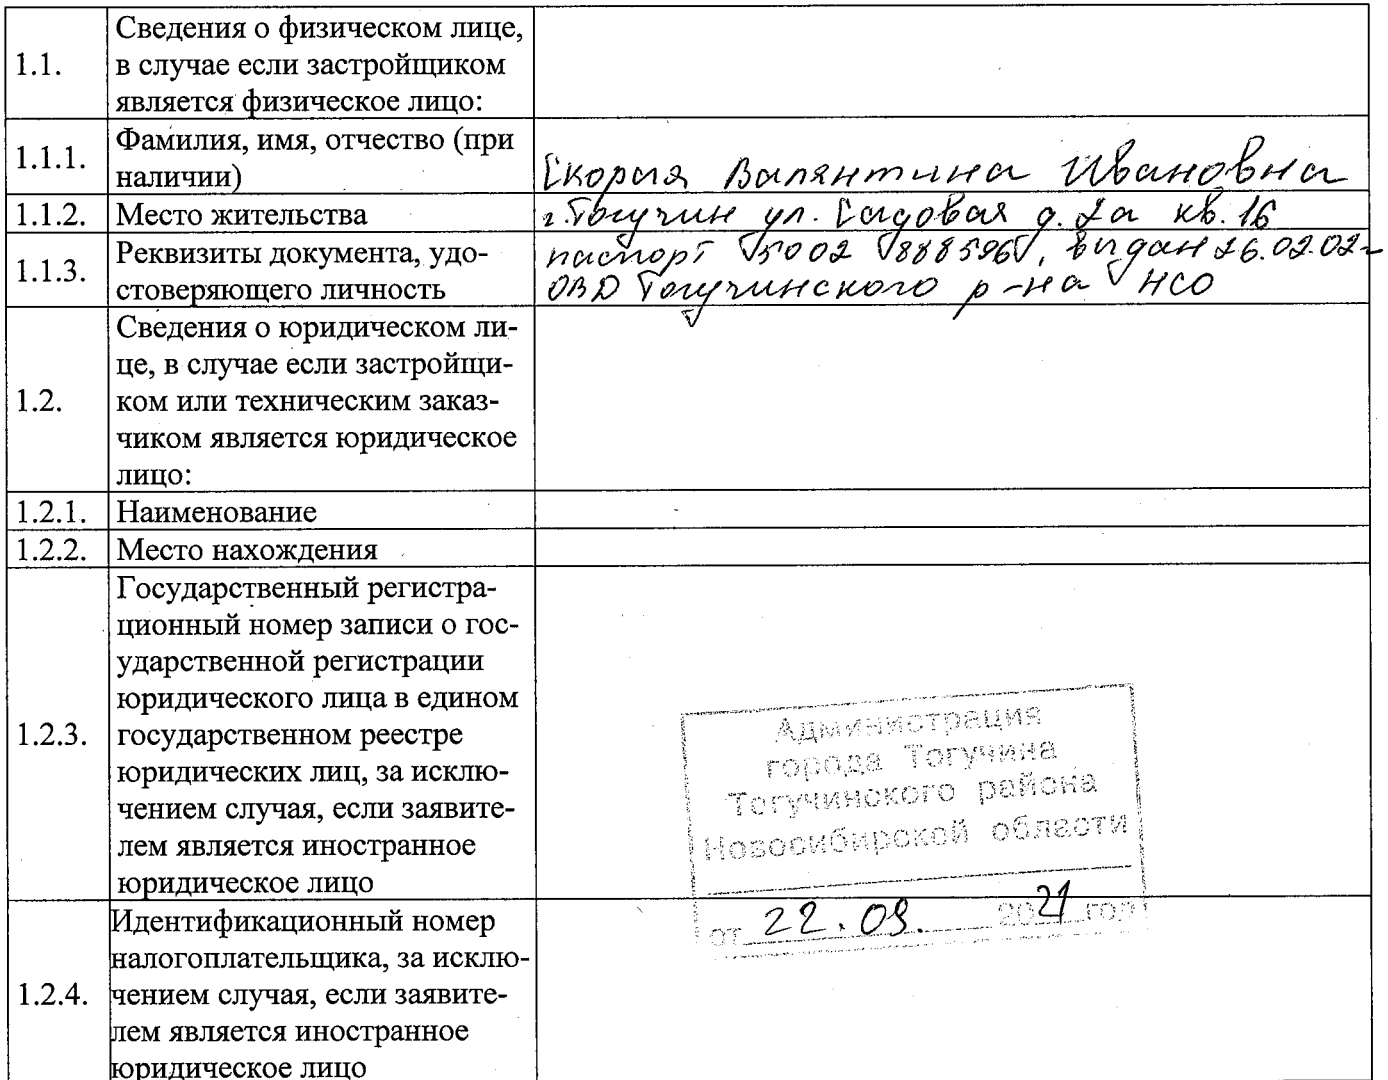 1.1. Сведения о физическом лице,
в случае если застройщиком
является физическое лицо:
1.1.1. Фамилия, имя, отчество (при
наличии)
Скорая Валянтина Ивановна
1.1.2. Место жительства г. Тогучин ул. Садовая д. 2а кв. 16
1.1.3. Реквизиты документа, удо-
стоверяющего личность
паспорт 5002 888596, выдан 26.02.02г
ОВД Тогучинского р-на НСО
1.2. Сведения о юридическом ли-
це, в случае если застройщи-
ком или техническим заказ-
чиком является юридическое
лицо:
1.2.1. Наименование
1.2.2. Место нахождения
1.2.3. Государственный регистра-
ционный номер записи о гос-
ударственной регистрации
юридического лица в едином
государственном реестре
юридических лиц, за исклю-
чением случая, если заявите-
лем является иностранное
юридическое лицо
Администрация
города Тогучина
Тогучинского района
Новосибирской области
от 22.09. 2021 год
1.2.4. Идентификационный номер
налогоплательщика, за исклю-
чением случая, если заявите-
лем является иностранное
юридическое лицо